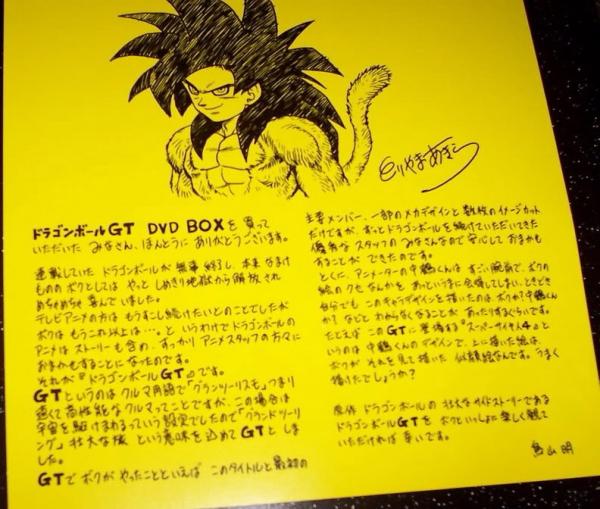 とりやまあきら
ドラゴンボールGT DVD BOXを 買って
いただいた みなさん、ほんとうに ありがとうございます。
連載していた ドラゴンボールが 無事 終了し、本来 なまけ
ものの ボクとしては やっと しめきり地獄から 解放され
めちゃめちゃ 喜んで いました。
テレビアニメの方は もうすこし続けたいとのことでしたが
ボクは もうこれ以上は…。と いうわけで ドラゴンボールの
アニメは ストーリーも含め、すっかり アニメスタッフの方々に
おまかすることに なったのです。
それが『ドラゴンボールGT』です。
GTというのは クルマ用語で「グランツーリスモ」つまり
速くて高性能な クルマってことですが、この場合は
宇宙を 駆けまわるっていう設定でしたので「グランドツーリ
ング」壮大な旅 という意味を 込めて GTと しま
した。
GTで ボクが やったことといえば このタイトルと 最初の
主要メンバー、一部のメカデザインと 数枚の イメージカット
だけですが、ずっとドラゴンボールを 続けていただいてきた
優秀な スタッフの みなさんなので 安心して おまかせ
することが できたのです。
とくに、アニメーターの 中鶴くんは すごい腕前で、ボクの
絵の クセ なんかを あっというまに 会得してしまい、ときどき
自分でも このキャラデザインを 描いたのは、ボクか?中鶴くん
か? などと わからなくなることが あったりするぐらいです。
たとえば このGTに 登場する『スーパーサイヤ人4』と
いうのは 中鶴くんの デザインで、上に描いた絵は、
ボクが それを見て描いた 似顔絵なんです。うまく
描けたでしょうか?
原作 ドラゴンボールの 壮大な サイドストーリーである
ドラゴンボールGTを ボクと いっしょに 楽しく 観て
いただければ 幸いです。
鳥山 明